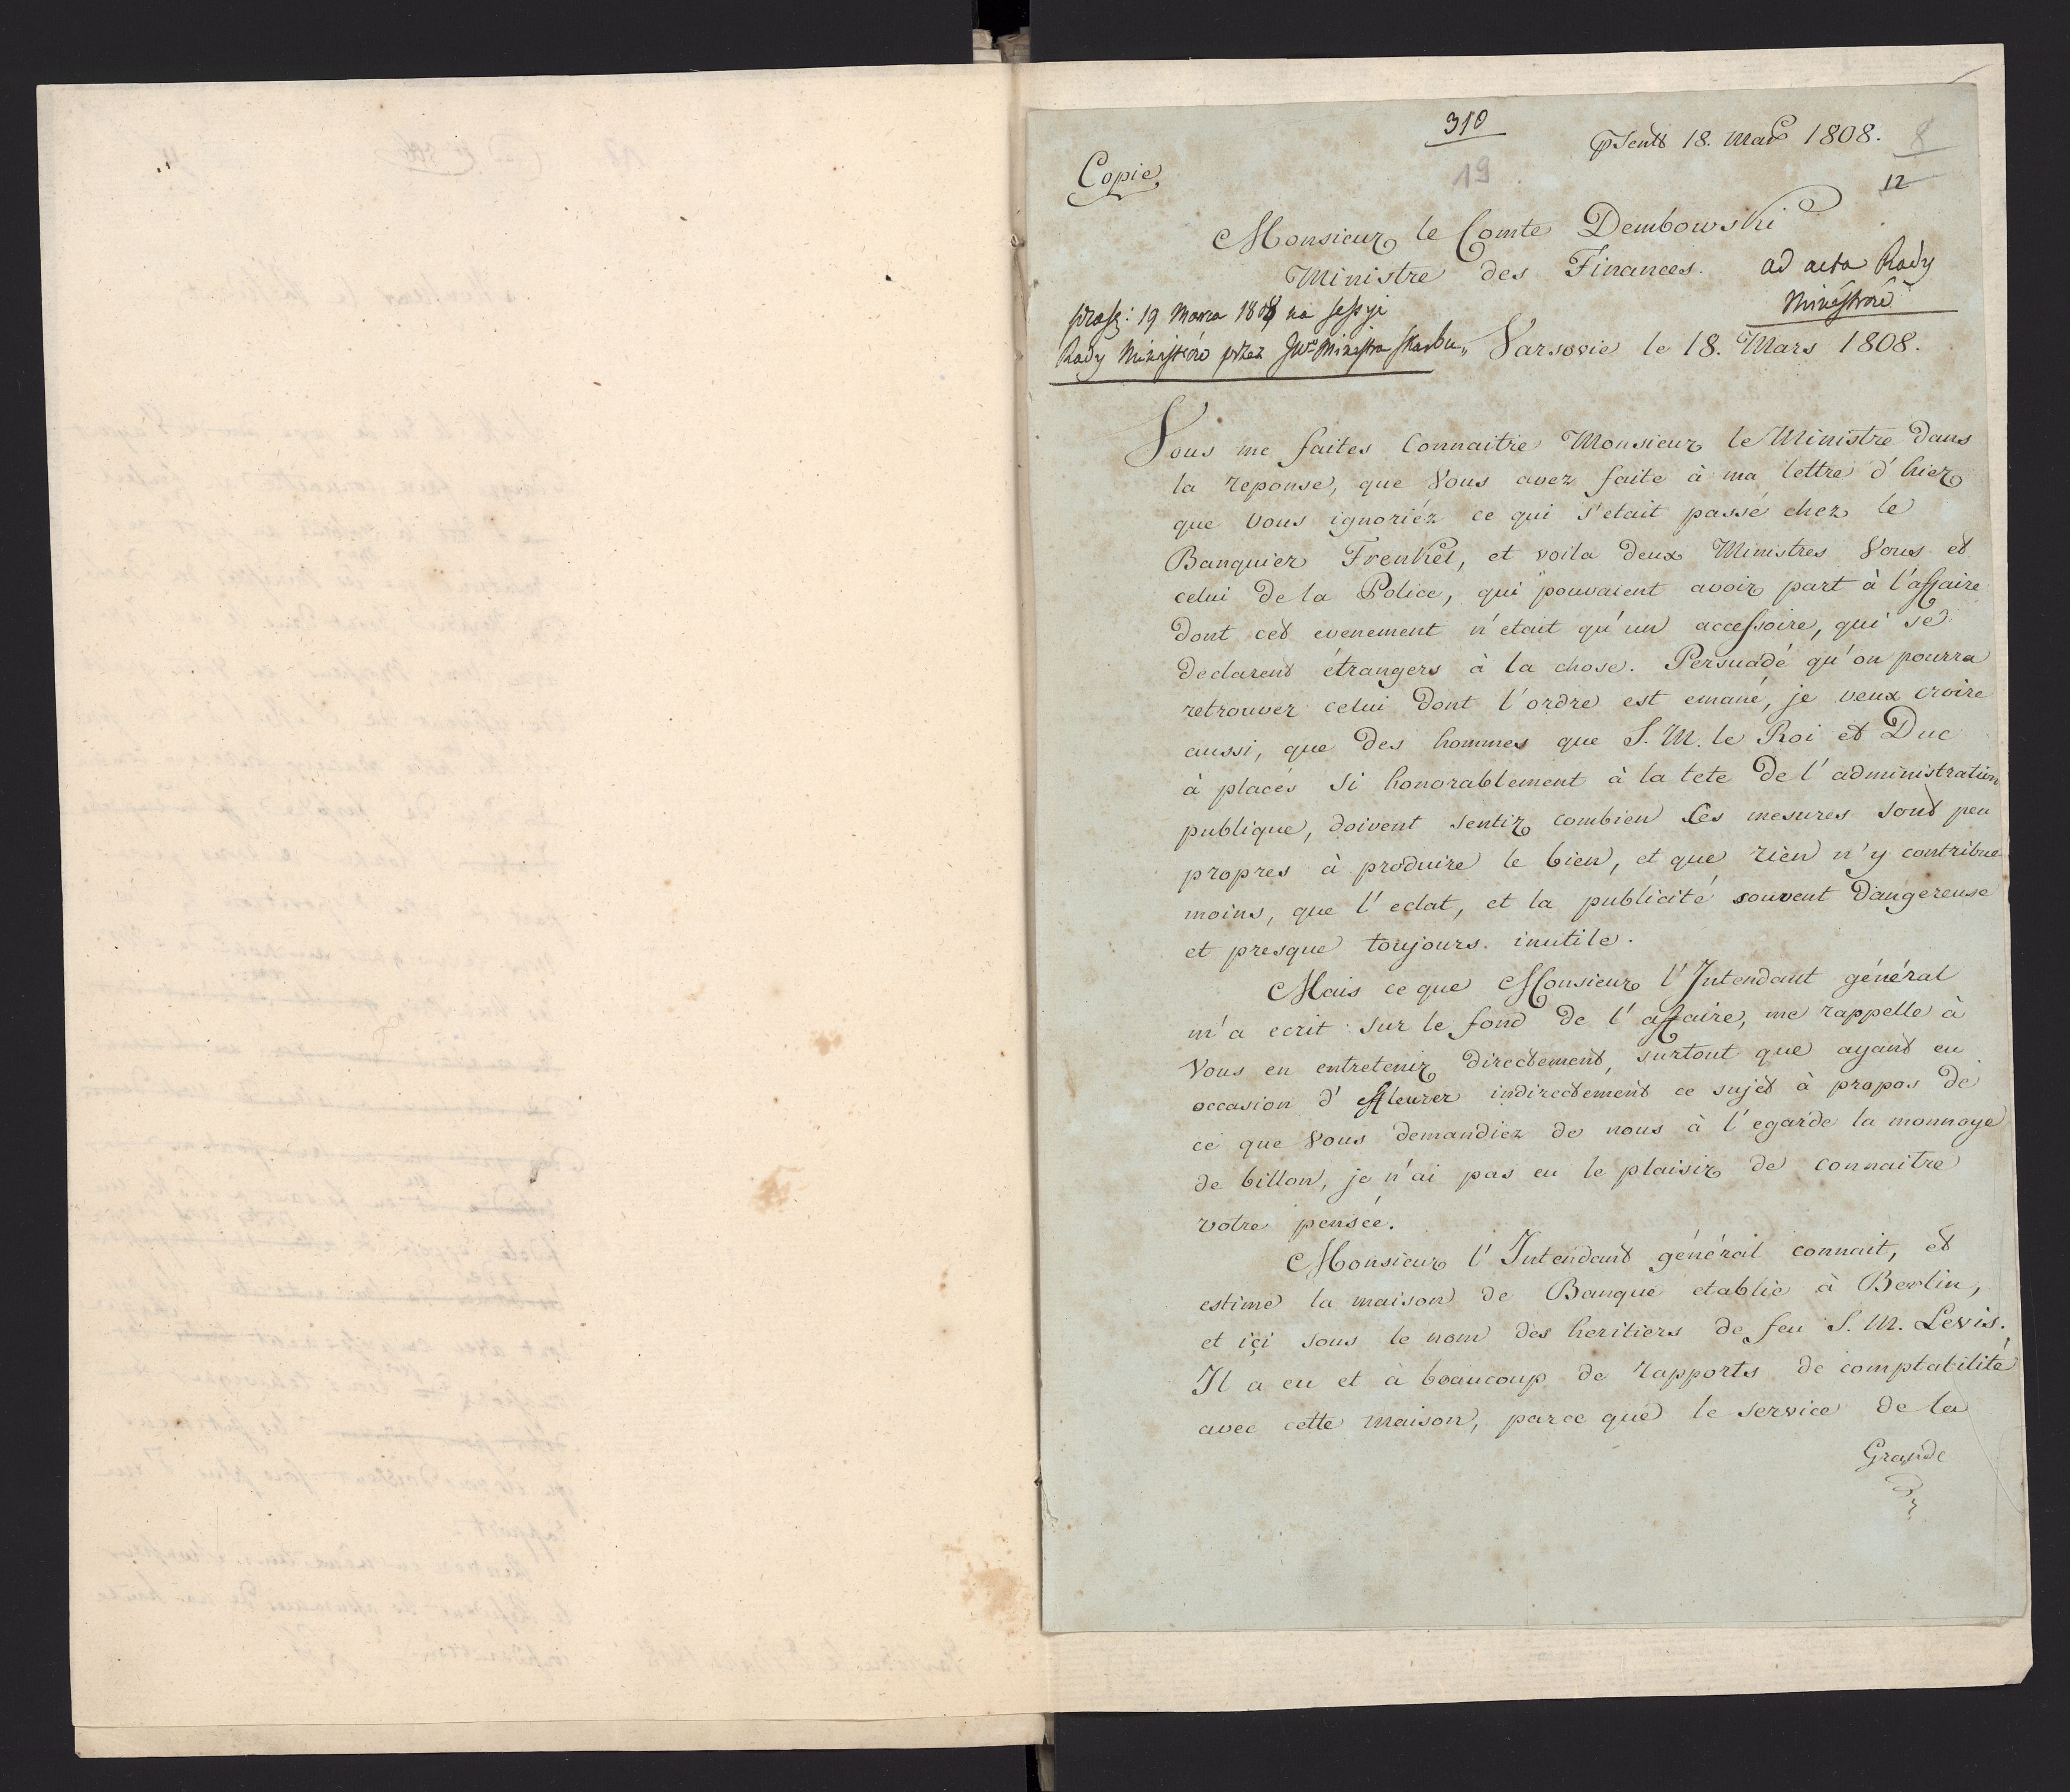 310
psentt 18. Mar 1808.
8
Copie
19
12
Monsieur le Comte Dembowski
Ministre des Finances.
ad acta Rady
Ministrów
19 Marca 1808 na sessyi
Rady Ministrów przez JWo Ministra Skarbu„
Varsovie le 18. Mars 1808.
Vous me faites Connaitre Monsieur le Ministre dans
la reponse, que Vous avez faite à ma lettre d'hier
que Vous ignoriéz ce qui s'etait passé chez le
Banquier Frenkel, et voila deux Ministres Vous et
celui de la Police, qui pouvaient avoir part à l'affaire
dont cet evenement n'etait qu'un accessoire, qui se
declarent étrangers à la chose. Persuadé qu'on pourra
retrouver celui dont l'ordre est emané, je veux croire
aussi, que des hommes que S. M. le Roi et Duc
à placés si honorablement à la tete de l'administration
publique, doivent sentir combien Ces mesures sont peu
propres à produire le bien, et que rien n'y contribue
moins, que l'eclat, et la publicité souvent dangereuse
et presque toujours inutile.
Mais ce que Monsieur l'Intendant général
m'a ecrit sur le fond de l'affaire, me rappelle à
Vous en entretenir directement, surtout que ayant eu
occasion d'effleurer indirectement ce sujet à propos de
ce que Vous demandiez de nous à l'egarde la monnoye
de billon, je n'ai pas eu le plaisir de connaitre
votre pensée.
Monsieur l'Intendant général connait, et
estime la maison de Banque etablie à Berlin,
et içi sous le nom des heritiers de feu S. M. Levis.
Il a eu et à beaucoup de rapports de comptabilité
avec cette maison, parce que le service de la
Grande